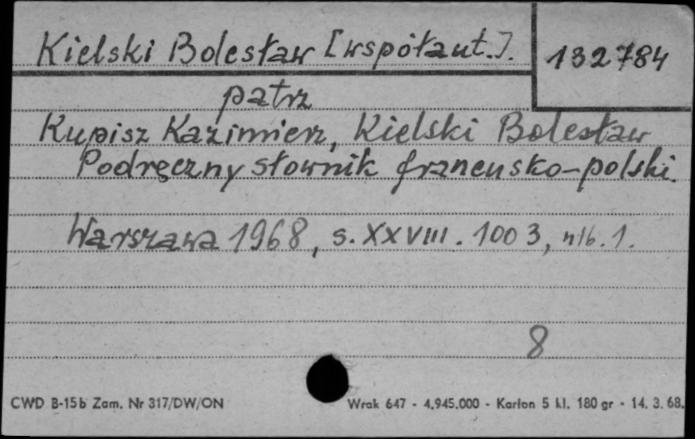 Kielski Bolesław [współaut.].
132784
patrz
Kupisz Kazimierz, Kielski Bolesław
Podręczny słownik francusko-polski.
Warszawa 1968, s. XXVIII. 1003, nlb. 1.
8
CWD B-15b Zam. Nr 317/DW/ON
Wrak 647 - 4.945.000 - Karton 5 kl. 180 gr - 14. 3. 68.